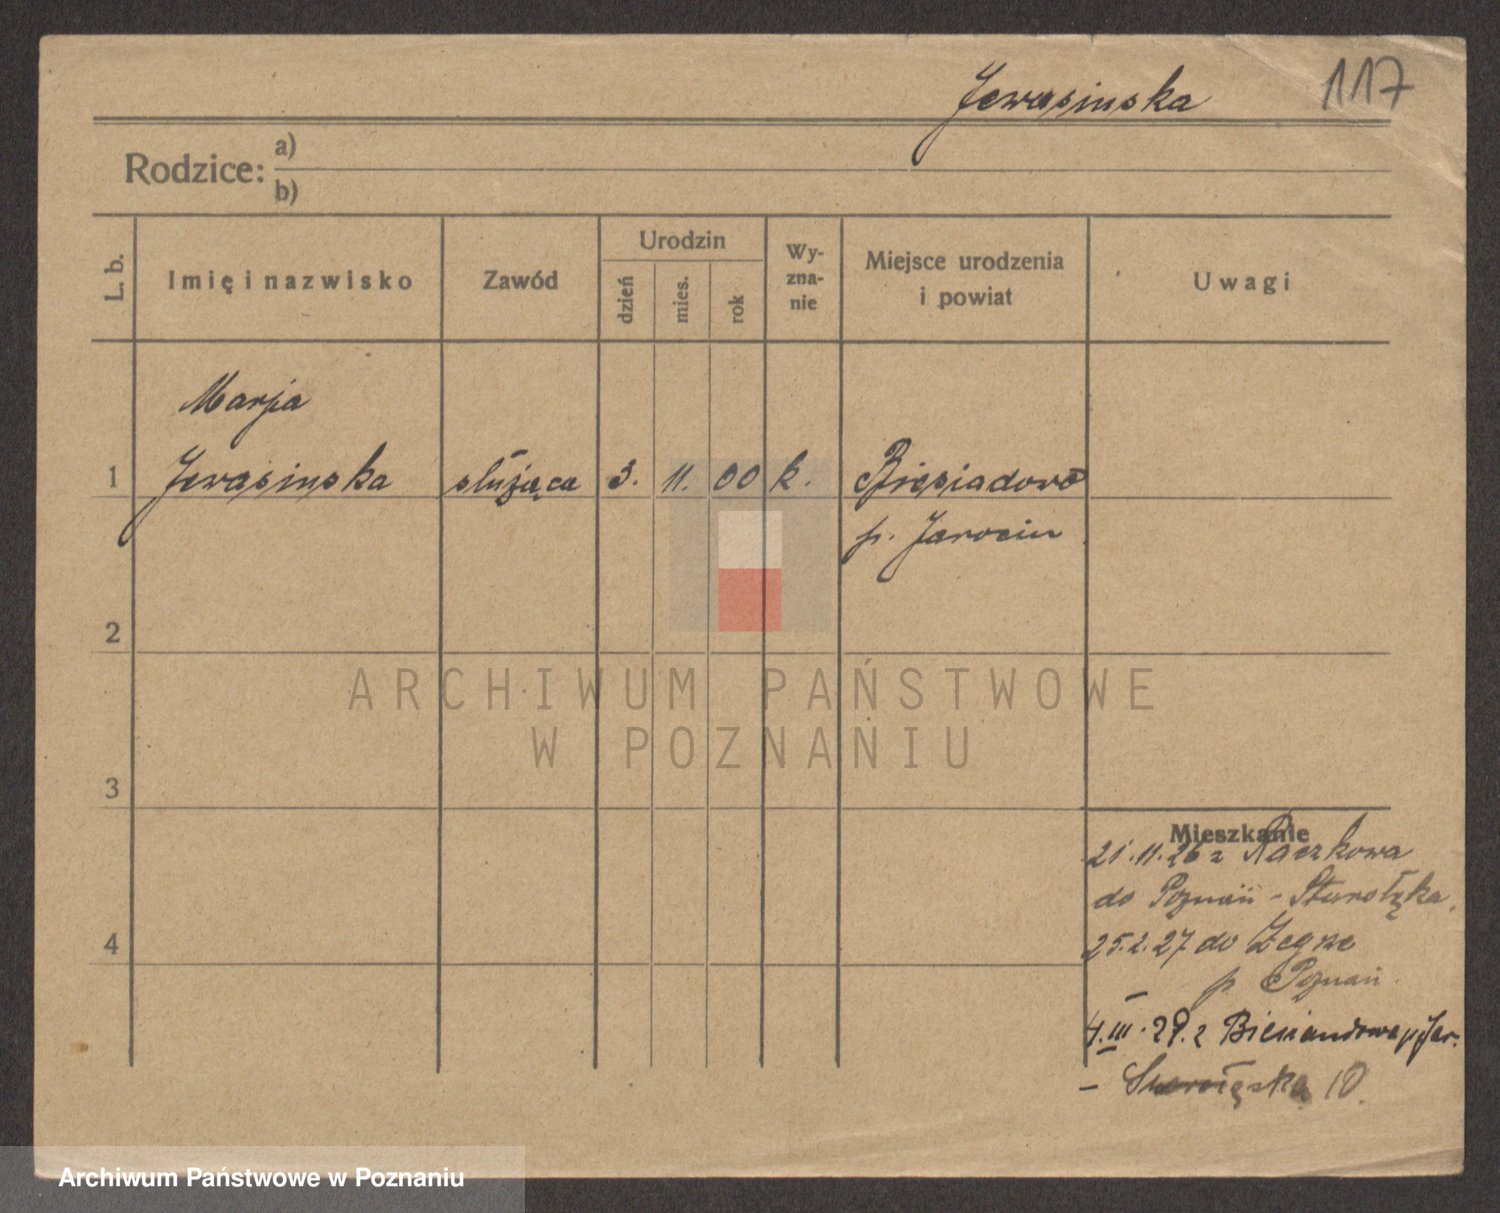 Jewasinska
117
Rodzice: a)
b)
L. b.
Imię i nazwisko
Zawód
Urodzin
dzień
mies.
rok
Wy-
zna-
nie
Miejsce urodzenia
i powiat
Uwagi
Marja
1 Jewasinska służąca 3. 11. 00 k. Biesiadowo
p. Jarocin
2
ARCHIWUM PAŃSTWOWE
W POZNANIU
3
Mieszkanie
21.11.26 z Raczkowa
do Poznań - Starołęka.
25.2.27 do Żegrze
p Poznań.
4
4.III.29. z Biesiandowa p Jar.
- 10.
Archiwum Państwowe w Poznaniu